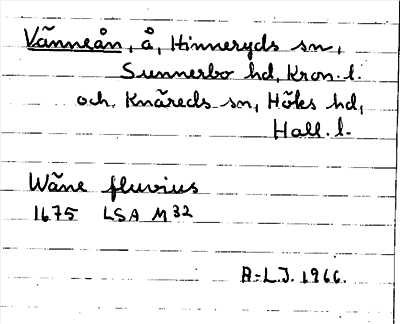 Vänneån, å, Hinneryds sn,
Sunnerbo hd, Kron. l.
och Knäreds sn, Höks hd,
Hall. l.
Wäne fluvius
1675 LSA M32
A-L.J. 1966.